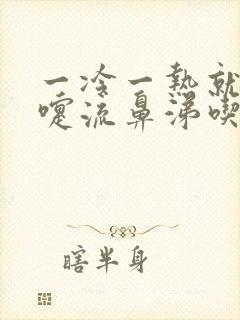 一冷一热就
嚏流鼻涕喫
瞎半身